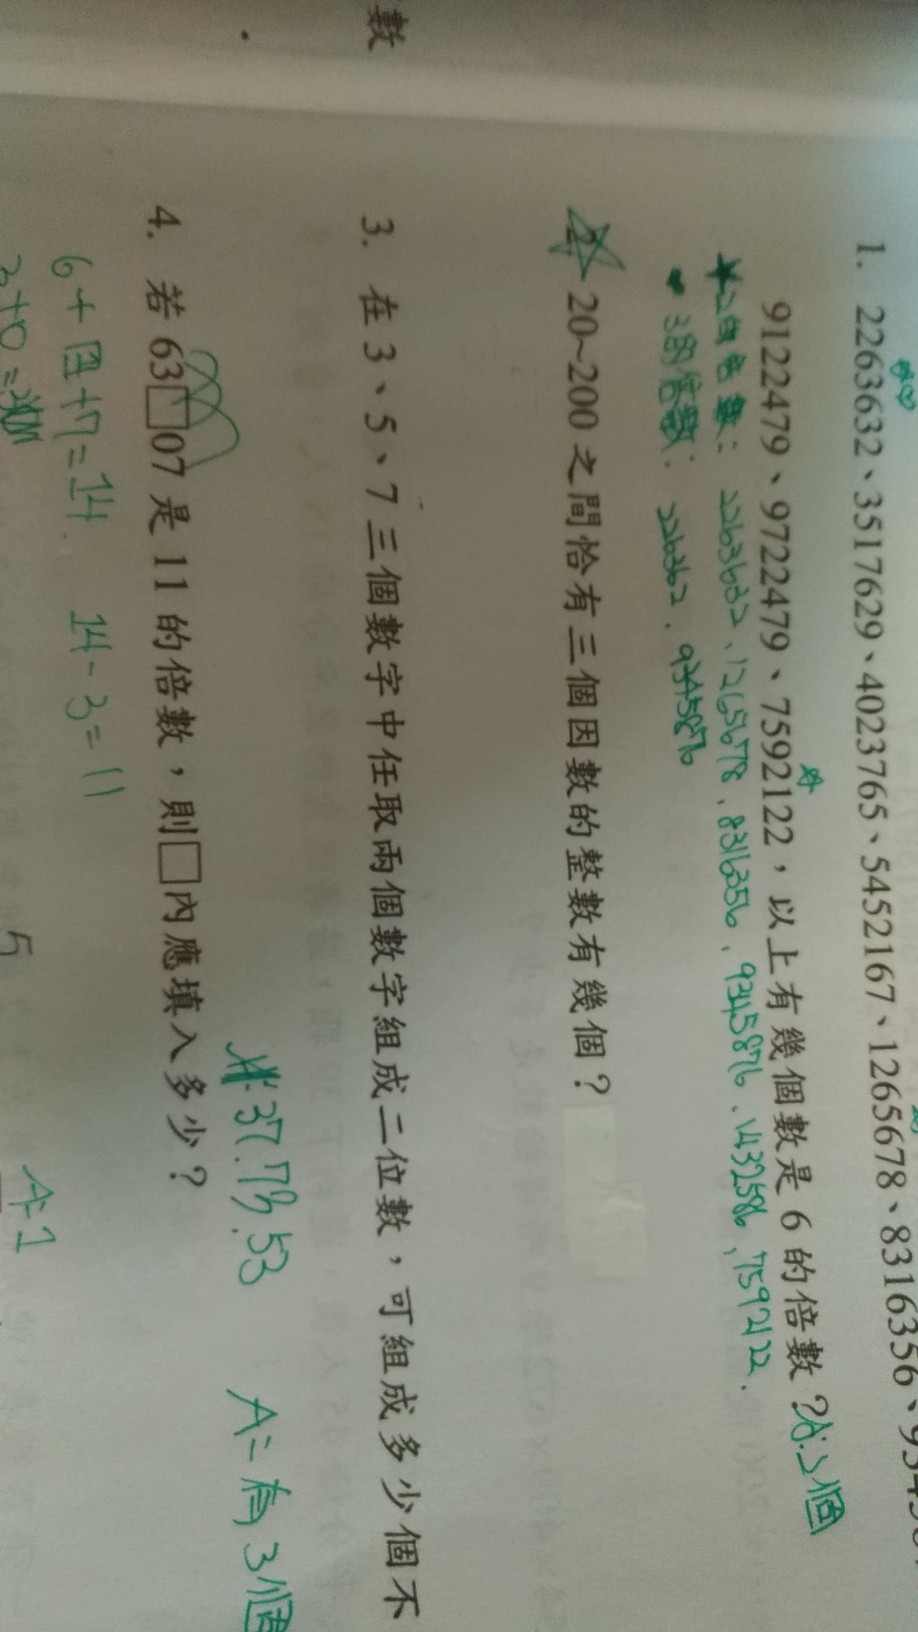 數
1. 2263632、3517629、4023765、5452167、1265678、8316356、
9122479、9722479、7592122，以上有幾個數是 6 的倍數？A:2個
2263632、1265678、8316356、9345876、1432586、7592122.
3的倍數： 226362、9345876
2. 20~200 之間恰有三個因數的整數有幾個？
3. 在 3、5、7 三個數字中任取兩個數字組成二位數，可組成多少個不
37.73.53 A=有3個
4. 若 63□07 是 11 的倍數，則□內應填入多少？
6+4+7=14. 14-3=11
3+0= 5 A=1